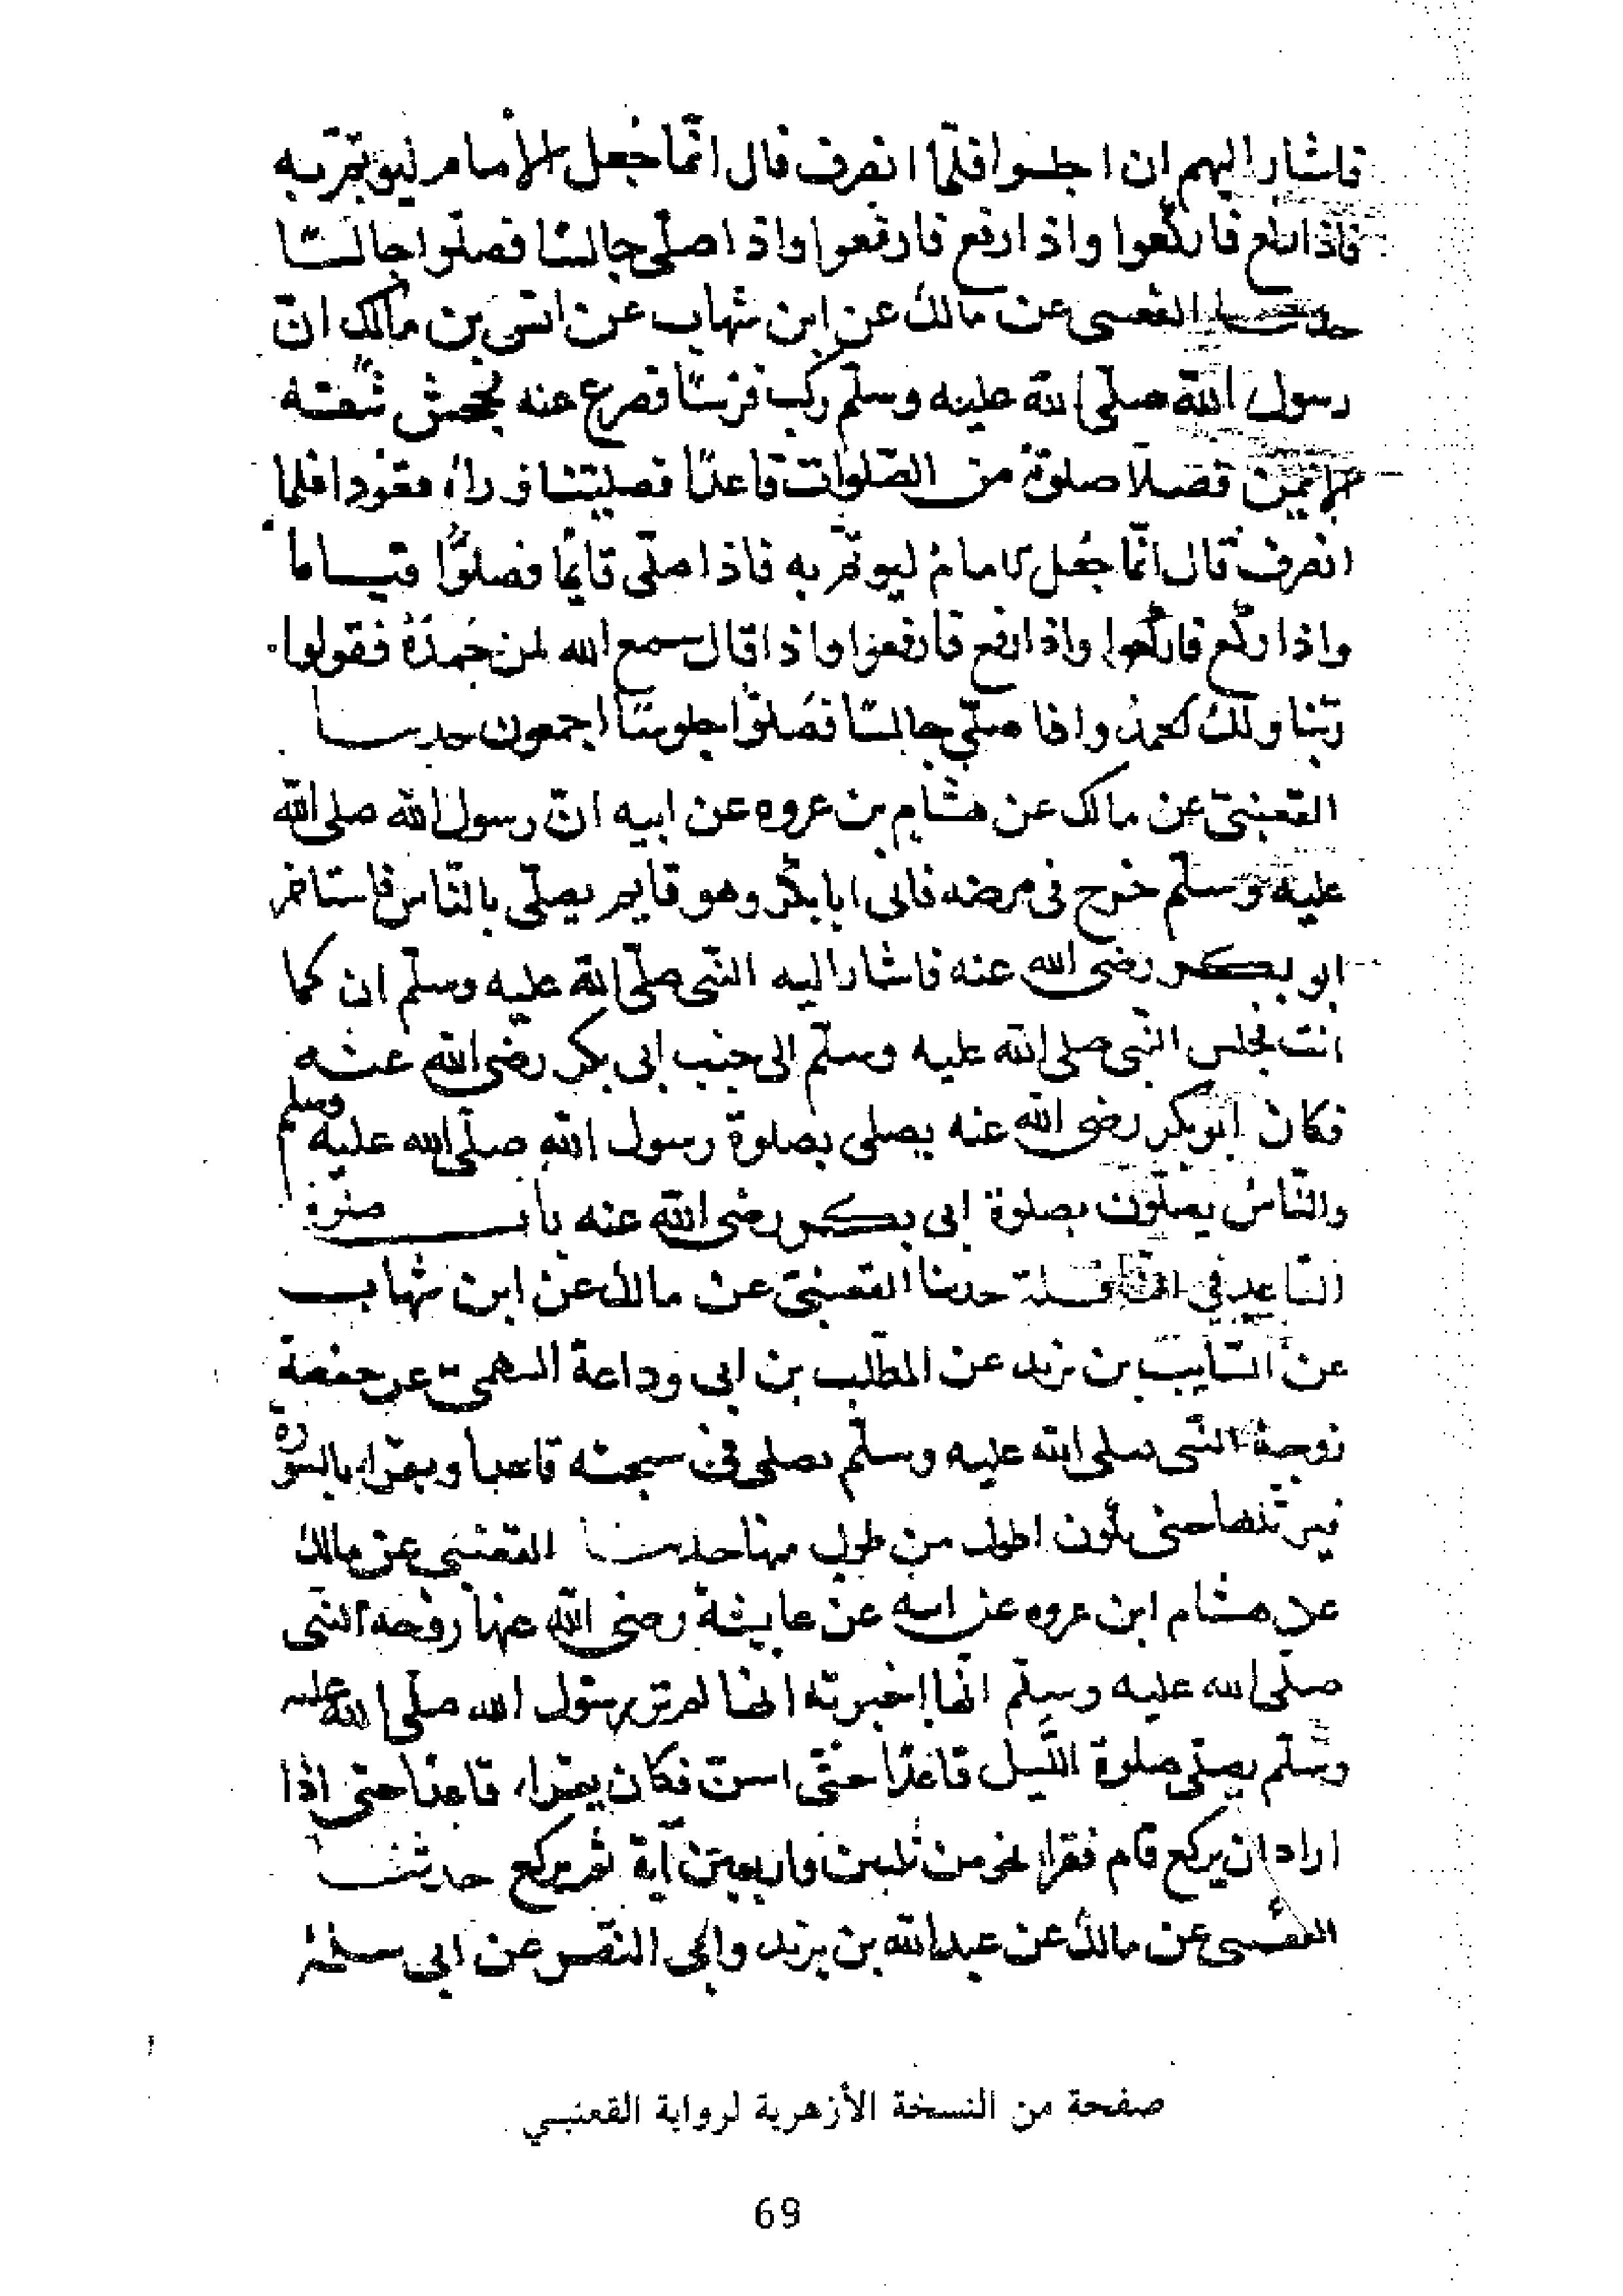 فاشار اليهم ان اجلسوا فلمّا انصرف قال انّما جُعل الأمام ليؤتمّ به
فاذا ركع فاركعوا واذا رفع فارفعوا واذا صلّى جالسًا فصلّوا جالسًا
حدثنا القعنبى عن مالك عن ابن شهاب عن انس بن مالك انّ
رسول الله صلّى الله عليه وسلّم ركب فرسًا فصرع عنه فجحش شقّه
الايمن فصلا صلوة من الصّلوات قاعدًا فصلّينا وراءه قعودا فلما
انصرف قال انّما جُعل الامام ليوتمّ به فاذا صلّى قائمًا فصلّوا قيـاما
واذا ركع فاركعوا واذا رفع فارفعوا واذا قال سمع الله لمن حمدَهُ فقولوا
ربّنا ولك الحمد واذا صلّى جالسًا فصَلّوا جلوسًا اجمعون حدثنا
القعنبىّ عن مالك عن هشام بن عروه عن ابيه انّ رسول الله صلى الله
عليه وسلّم خرج فى مرضه فاتى ابا بكر وهو قايم يصلّى بالنّاس فاستاخر
ابو بكر رضى الله عنه فاشار اليه النّبى صلّى الله عليه وسلّم ان كما
انت فجلس النّبى صلى الله عليه وسلّم الى جنب ابى بكر رضى الله عنه
فكان ابو بكر رضى الله عنه يصلى بصلوة رسول الله صلّى الله عليه وسلم
والنّاس يصلّون بصلوة ابى بكر رضى الله عنه باب صلوة
القاعد في النافلة حدثنا القعنبىّ عن مالك عن ابن شهاب
عن السّايب بن يزيد عن المطّلب بن ابى وداعة السهمى عن حفصة
زوجة النّبى صلى الله عليه وسلّم يصلى فى سبحته قاعدا ويقرا بالسورة
فيرتلها حتى تكون اطول من طول منها حدثنا القعنبى عن مالك
عن هشام ابن عروه عن ابيه عن عايشة رضى الله عنها زوجة النّبى
صلّى الله عليه وسلّم انّها اخبرته انها لم تر رسول الله صلّى الله عليه
وسلّم يصلّى صلوة اللّيل قاعدًا حتّى اسن فكان يقرا قاعدًا حتى اذا
اراد ان يركع قام فقرا نحو من ثلثين واربعين آية ثم يركع حدثنا
القعنبى عن مالك عن عبد الله بن يزيد وابى النّضر عن ابى سلمة
صفحة من النسخة الأزهرية لرواية القعنبي
69